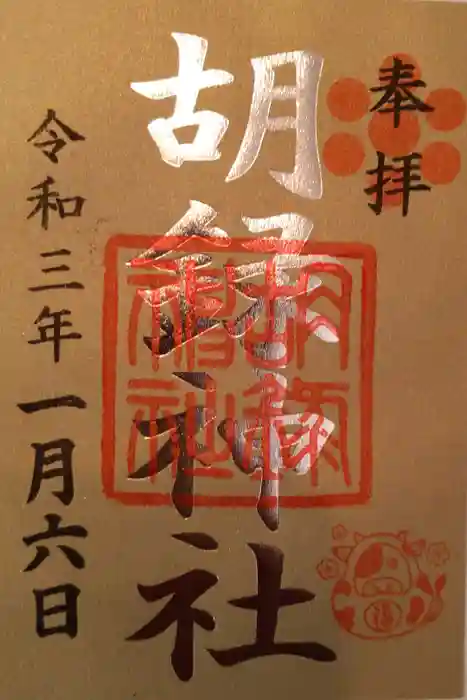 奉拝
胡録神社
胡録神社
令和三年一月六日
福